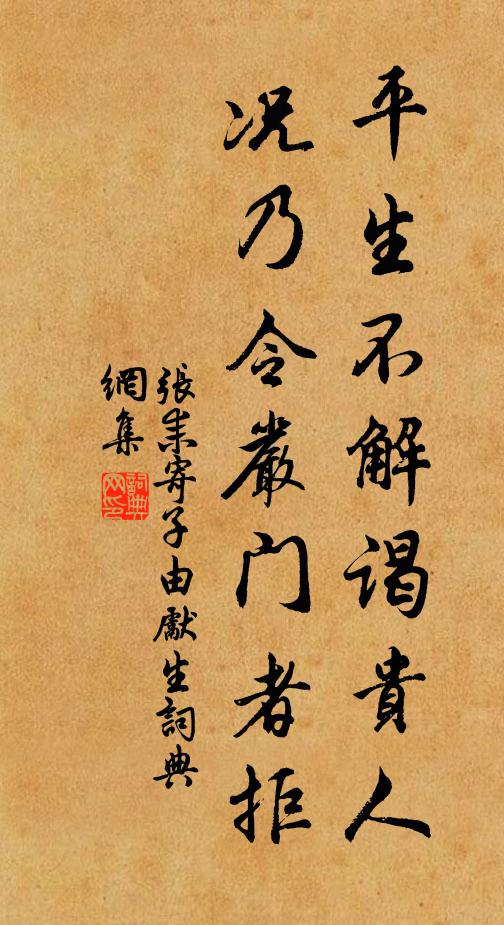 平生不解谒貴人
况乃令嚴門者拒
張耒寄子由獻生詞典
網集
詞典
网印